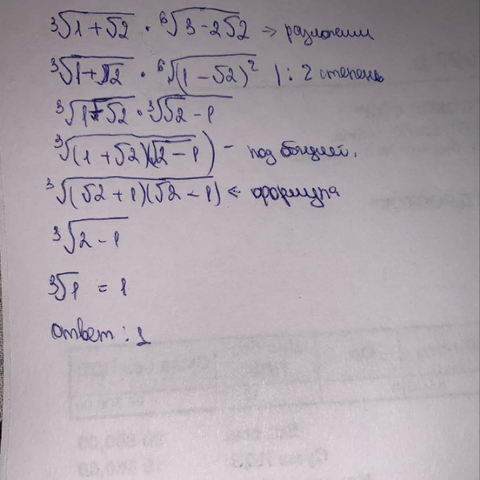 ∛(1+√2) · ⁶√(3-2√2) → разложим
∛(1+√2) · ⁶√((1-√2)²) | : 2 степень
∛(1+√2) · ∛(√2-1)
∛((1+√2)(√2-1)) - под общий.
∛((√2+1)(√2-1)) ← формула
∛(2-1)
∛1 = 1
ответ : 1